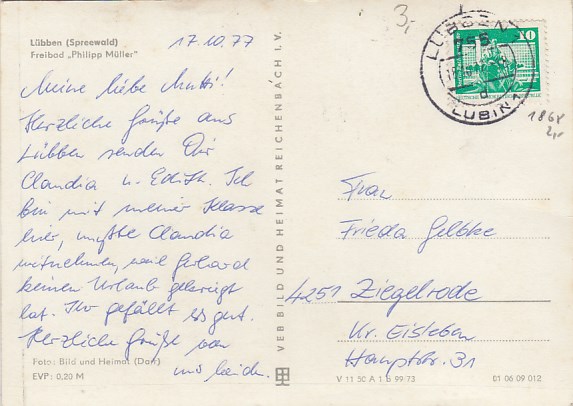 Lübben (Spreewald)
Freibad „Philipp Müller"
17.10.77
Meine liebe Mutti!
Herzliche Grüße aus
Lübben senden Dir
Claudia u. Edith. Ich
bin mit meiner Klasse
hier, mußte Claudia
mitnehmen, weil Gerhard
keinen Urlaub gekriegt
hat. Ihr gefällt es gut.
Herzliche Grüße von
uns beiden.
Foto: Bild und Heimat (Dark)
EVP: 0,20 M
VEB BILD UND HEIMAT REICHENBACH I. V.
3,-
LÜBBEN 1
LUBIN 1
d
10
1868
2,-
Frau
Frieda Geltke
4251 Ziegelrode
Kr. Eisleben
Hauptstr. 31
V 11 50 A 1 B 99-73
01 06 09 012